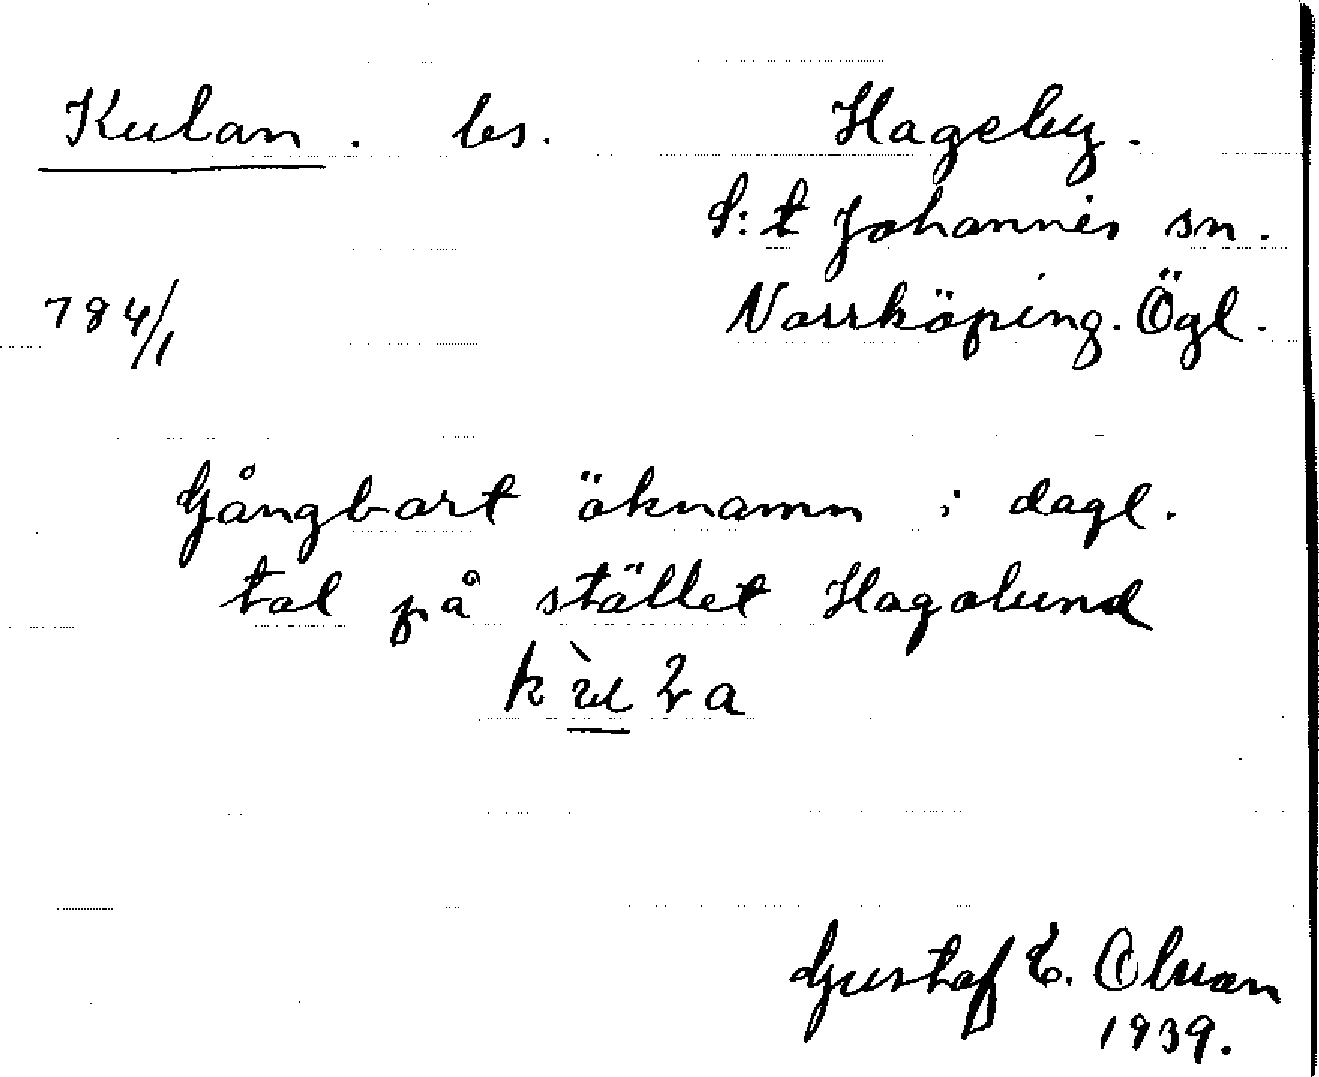 Kulan. bs. Hageby.
S:t Johannes sn.
784/1 Norrköping. Ögl.
Gångbart öknamn i dagl.
tal på stället Hagalund
Gustaf E. Olsson
1939.